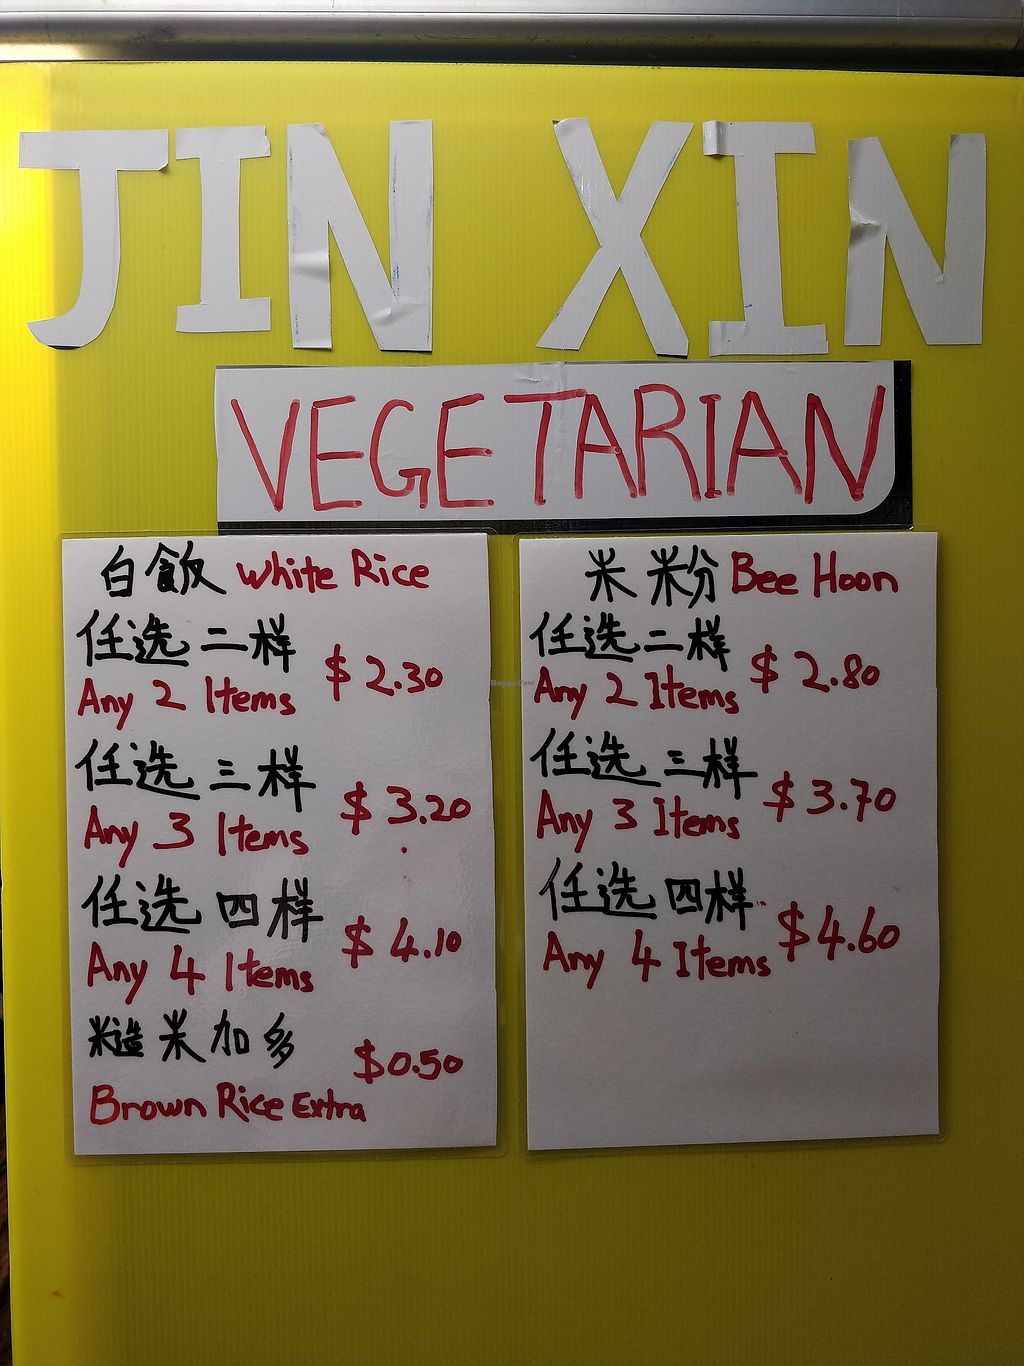 JIN XIN
VEGETARIAN
白飯 White Rice
任选二样
Any 2 Items $2.30
任选三样
Any 3 Items $3.20
任选四样
Any 4 Items $4.10
糙米加多
Brown Rice Extra $0.50
米粉 Bee Hoon
任选二样
Any 2 Items $2.80
任选三样
Any 3 Items $3.70
任选四样
Any 4 Items $4.60
HappyCow